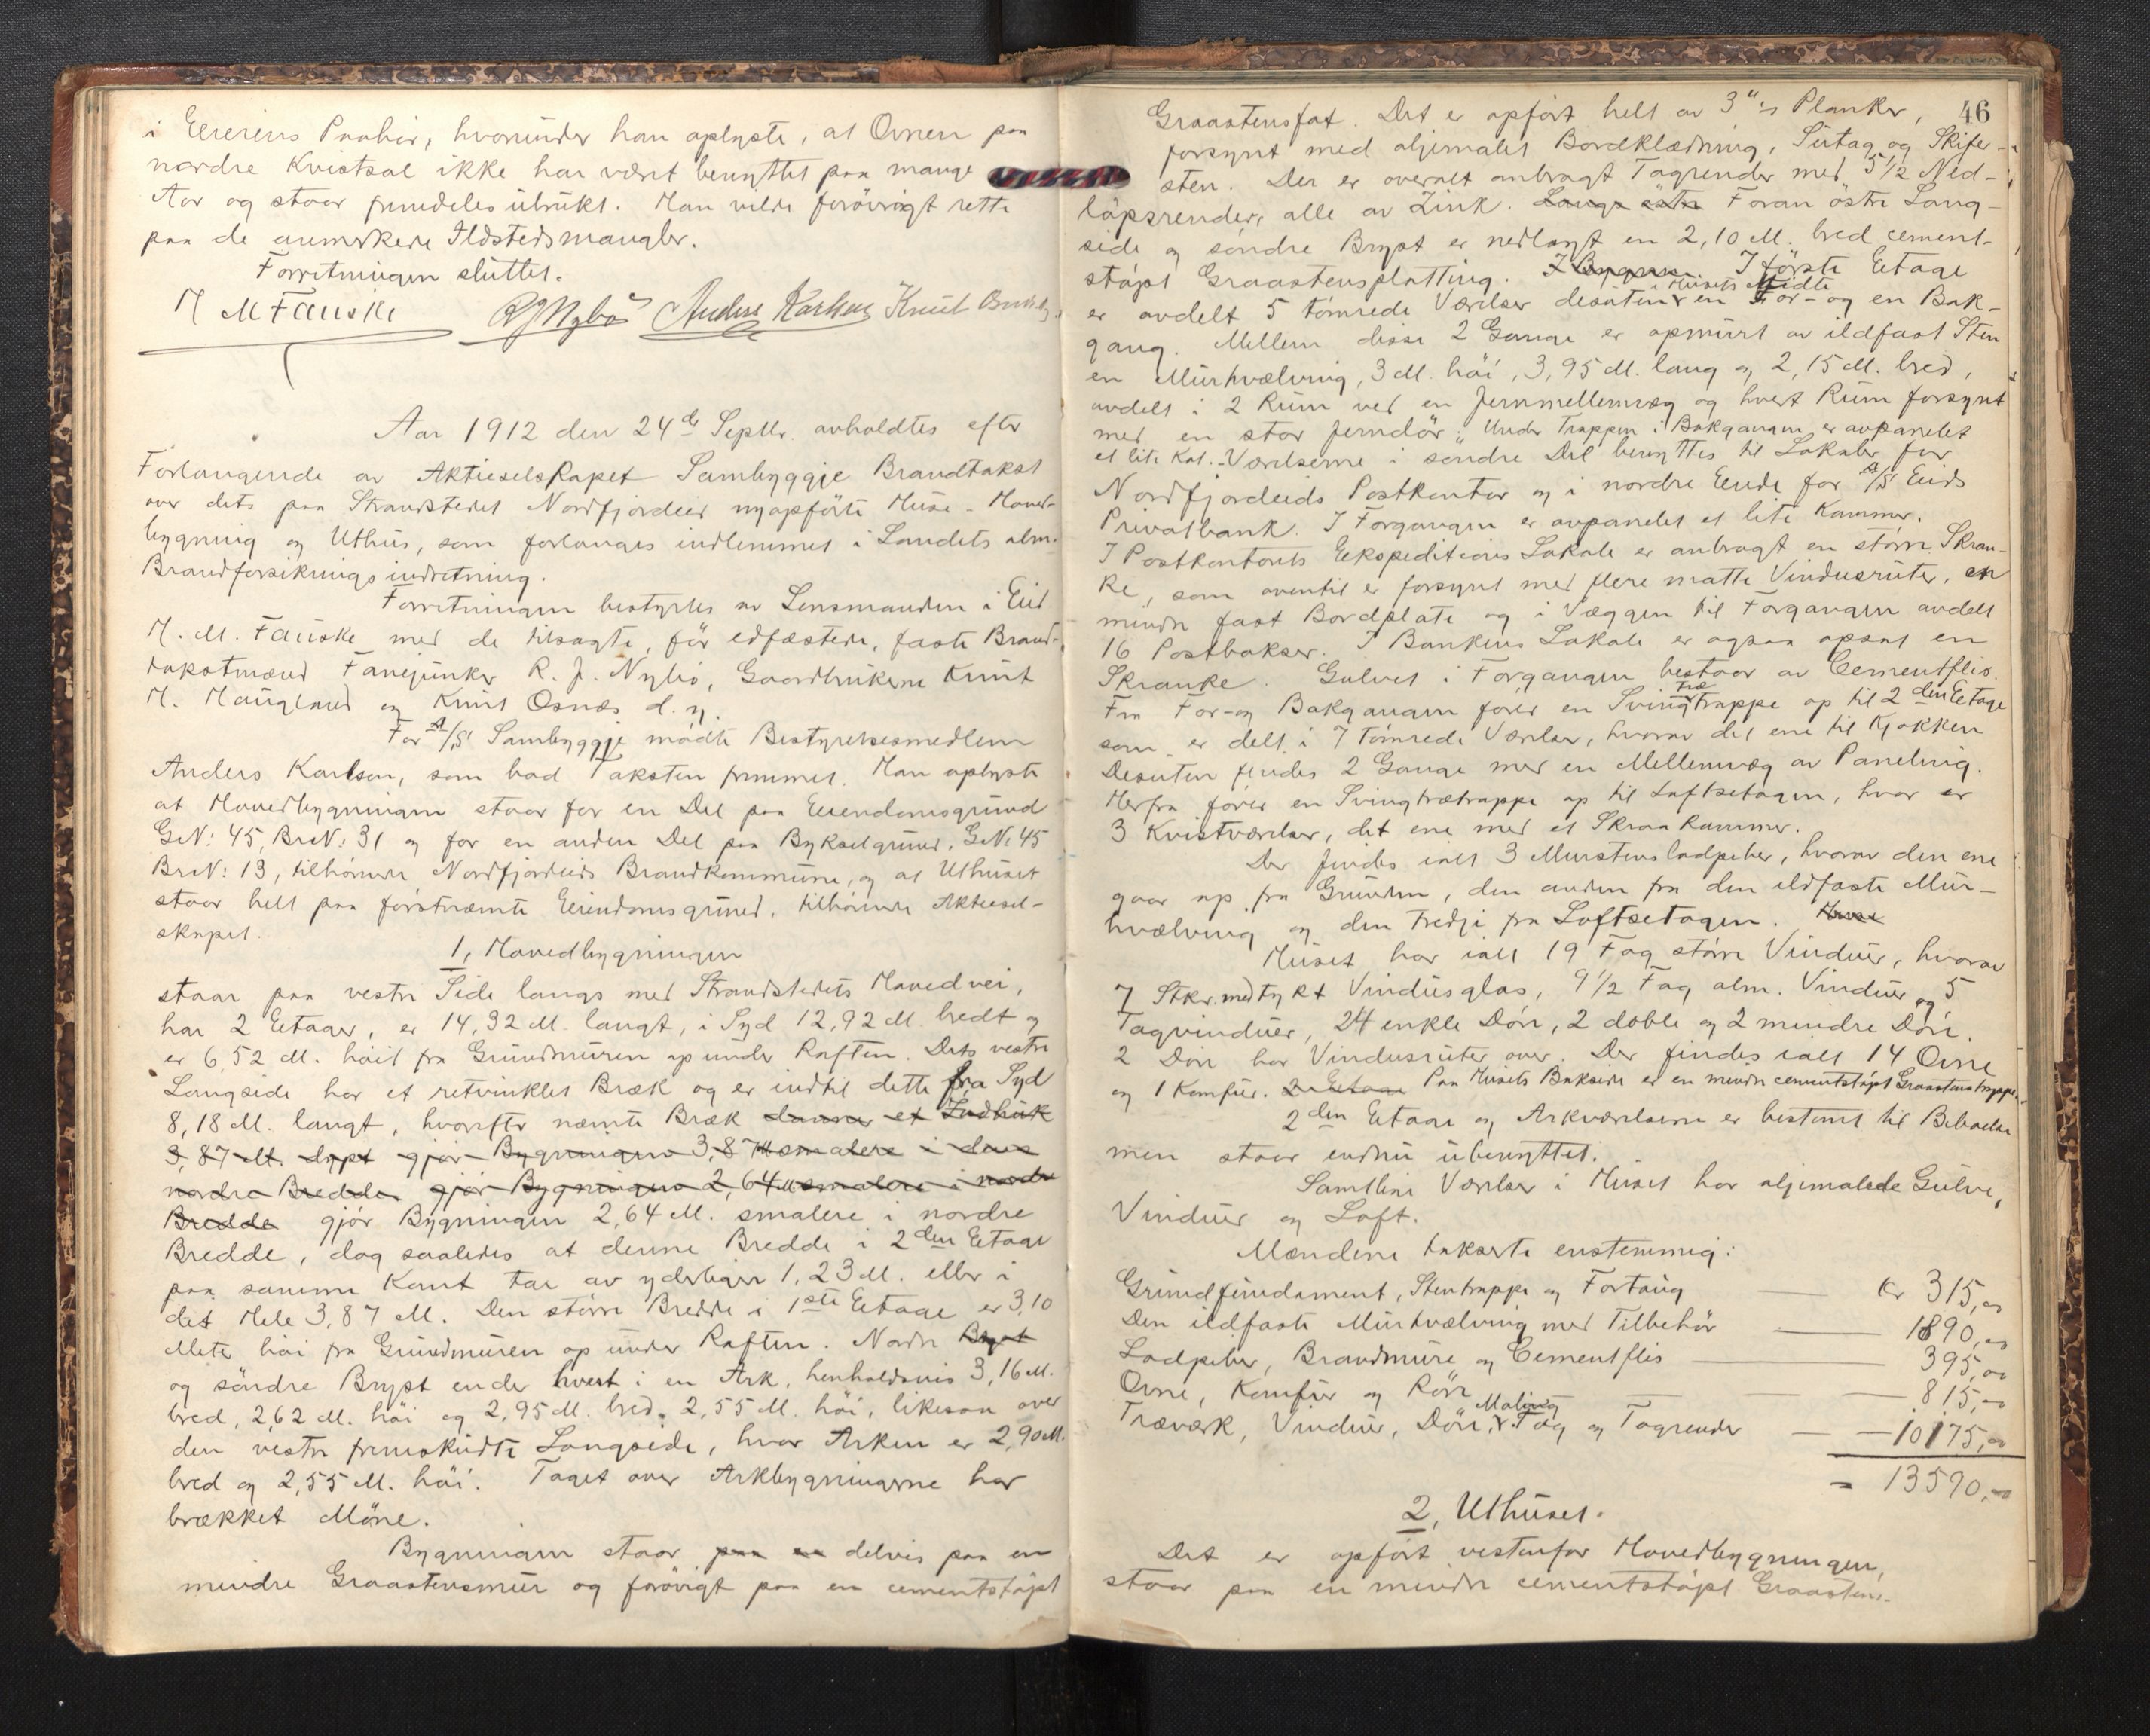 i Eierens Paahør, hvorunder han oplyste, at Ovnen paa
nordre Kvistsal ikke har været benyttet paa mange
Aar og staar fremdeles ubrukt. Han vilde forøvrigt rette
paa de anmerkede Ildstedsmangler.
Forretningen sluttet.
H M Fauske RJNybø Anders Karlsen Knut Osnes
Aar 1912 den 24de Septbr. avholdtes efter
Forlangende av Aktieselskapet Sambyggje Brandtakst
over dets paa Strandstedet Nordfjordeid nyopførte Huse - Hoved-
bygning og Uthus, som forlanges indlemmet i Landets alm.
Brandforsikringsindretning.
Forretningen bestyrtes av Lensmanden i Eid
H. M. Fauske med de tilsagte, før edfæstede, faste Brand-
takstmænd Fanejunker R. J. Nybø, Gaardbrukerne Knut
H. Haugland og Knut Osnæs d. y.
For A/S Sambyggje mødte Bestyrelsesmedlem
Anders Karlsen, som bad Taksten fremmet. Han oplyste
at Hovedbygningen staar for en Del paa Eiendomsgrund
G.N: 45, Br.N: 31 og for en anden Del paa Bykselgrund, G.N: 45
Br.N: 13, tilhørende Nordfjordeids Brandkommune, og at Uthuset
staar helt paa førstnævnte Eiendomsgrund, tilhørende Aktiesel-
skapet.
1, Hovedbygningen
staar paa vestre Side langs med Strandstedets Hovedvei,
har 2 Etager, er 14,32 M. langt, i Syd 12,92 M. bredt og
er 6,52 M. høit fra Grundmuren op under Raften. Dets vestre
Langside har et retvinklet Bræk og er indtil dette fra Syd
8,18 M. langt, hvorefter nævnte Bræk danner et Indhuk
3,87 M. dypt gjør Bygningen 3,87 M smalere i dens
nordre Bredde gjør Bygningen 2,64 M smalere i nordre
Bredde gjør Bygningen 2,64 M. smalere i nordre
Bredde, dog saaledes at denne Bredde i 2den Etage
paa samme Kant tar av yderligere 1,23 M. eller i
det Hele 3,87 M. Den større Bredde i 1ste Etage er 3,10
Meter høi fra Grundmuren op under Raften. Nordre Bryst
og søndre Bryst ender hvert i en Ark, henholdsvis 3,16 M.
bred, 2,62 M. høi og 2,95 M. bred, 2,55 M. høi, likesom over
den vestre fremskudte Langside, hvor Arken er 2,90 M.
bred og 2,55 M. høi. Taget over Arkbygningerne har
brækket Møne.
Bygningen staar paa en delvis paa en
mindre Graastensmur og forøvrigt paa en cementstøpt
46
Graastensfot. Det er opført helt av 3"s Planker,
forsynt med oljemalet Bordklædning, Sutag og Skifer-
sten. Der er overalt anbragt Tagrender med 5 1/2 Ned-
løpsrender, alle av Zink. Langs østre Foran østre Lang-
side og søndre Bryst er nedlagt en 2,10 M. bred cement-
støpt Graastensplatting. I Bygnin I første Etage
i Husets Midte
er avdelt 5 tømrede Værelser desuten en For- og en Bak-
gang. Mellem disse 2 Gange er opmurt av ildfast Sten
en Murhvælving, 3 M. høi, 3,95 M. lang og 2,15 M. bred,
avdelt i 2 Rum ved en Jernmellemvæg og hvert Rum forsynt
med en stor Jerndør. Under Trappen i Bakgangen er avpanelet
et lite Kot. Værelserne i søndre Del benyttes til Lokaler for
Nordfjordeids Postkontor og i nordre Ende for A/S Eids
Privatbank. I Forgangen er avpanelet et lite Kammer.
I Postkontorets Ekspeditions Lokale er anbragt en større Skran-
ke, som oventil er forsynt med flere matte Vindusruter, en
mindre fast Bordplate og i Væggen til Forgangen avdelt
16 Postbokser. I Bankens Lokale er ogsaa opsat en
Skranke. Gulvet i Forgangen bestaar av Cementflis.
Træ
Fra For- og Bakgangen fører en Svingtrappe op til 2den Etage
som er delt i 7 tømrede Værelser, hvorav det ene til Kjøkken
Desuten findes 2 Gange med en Mellemvæg av Paneling.
Herfra fører en Svingtrætrappe op til Loftsetagen, hvor er
3 Kvistværelser, det ene med et Skraakammer.
Der findes ialt 3 Murstensladpiber, hvorav den ene
gaar op fra Grunden, den anden fra den ildfaste Mur-
hvælving og den tredje fra Loftsetagen. Huse
Huset har ialt 19 Fag større Vinduer, hvorav
7 Stkr. med tykt Vindusglas, 9 1/2 Fag alm. Vinduer og 5
Tagvinduer, 24 enkle Døre, 2 doble og 2 mindre Døre.
2 Døre har Vindusruter over. Der findes ialt 14 Ovne
og 1 Komfur. 2. Etage Paa Husets Bakside er en mindre cementstøpt Graastenstrappe.
2den Etage og Arkværelserne er bestemt til Beboelse
men staar endnu ubenyttet.
Samtlige Værelser i Huset har oljemalede Gulve,
Vinduer og Loft.
Mændene takserte enstemmig:
Grundfundament, Stentrappe og Fortaug — Kr 315,00
Den ildfaste Murhvælving med Tilbehør — 1890,00
Ladpiber, Brandmure og Cementflis — 395,00
Ovne, Komfur og Rør — 815,00
Maling
Træværk, Vinduer, Døre, Tag og Tagrender — 10175,00
= 13590,00
2, Uthuset.
Det er opført vestenfor Hovedbygningen,
staar paa en mindre cementstøpt Graastens-